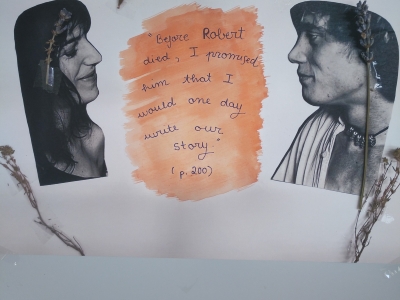 "Before Robert
died, I promised
him that I
would one day
write our
story."
(p. 200)